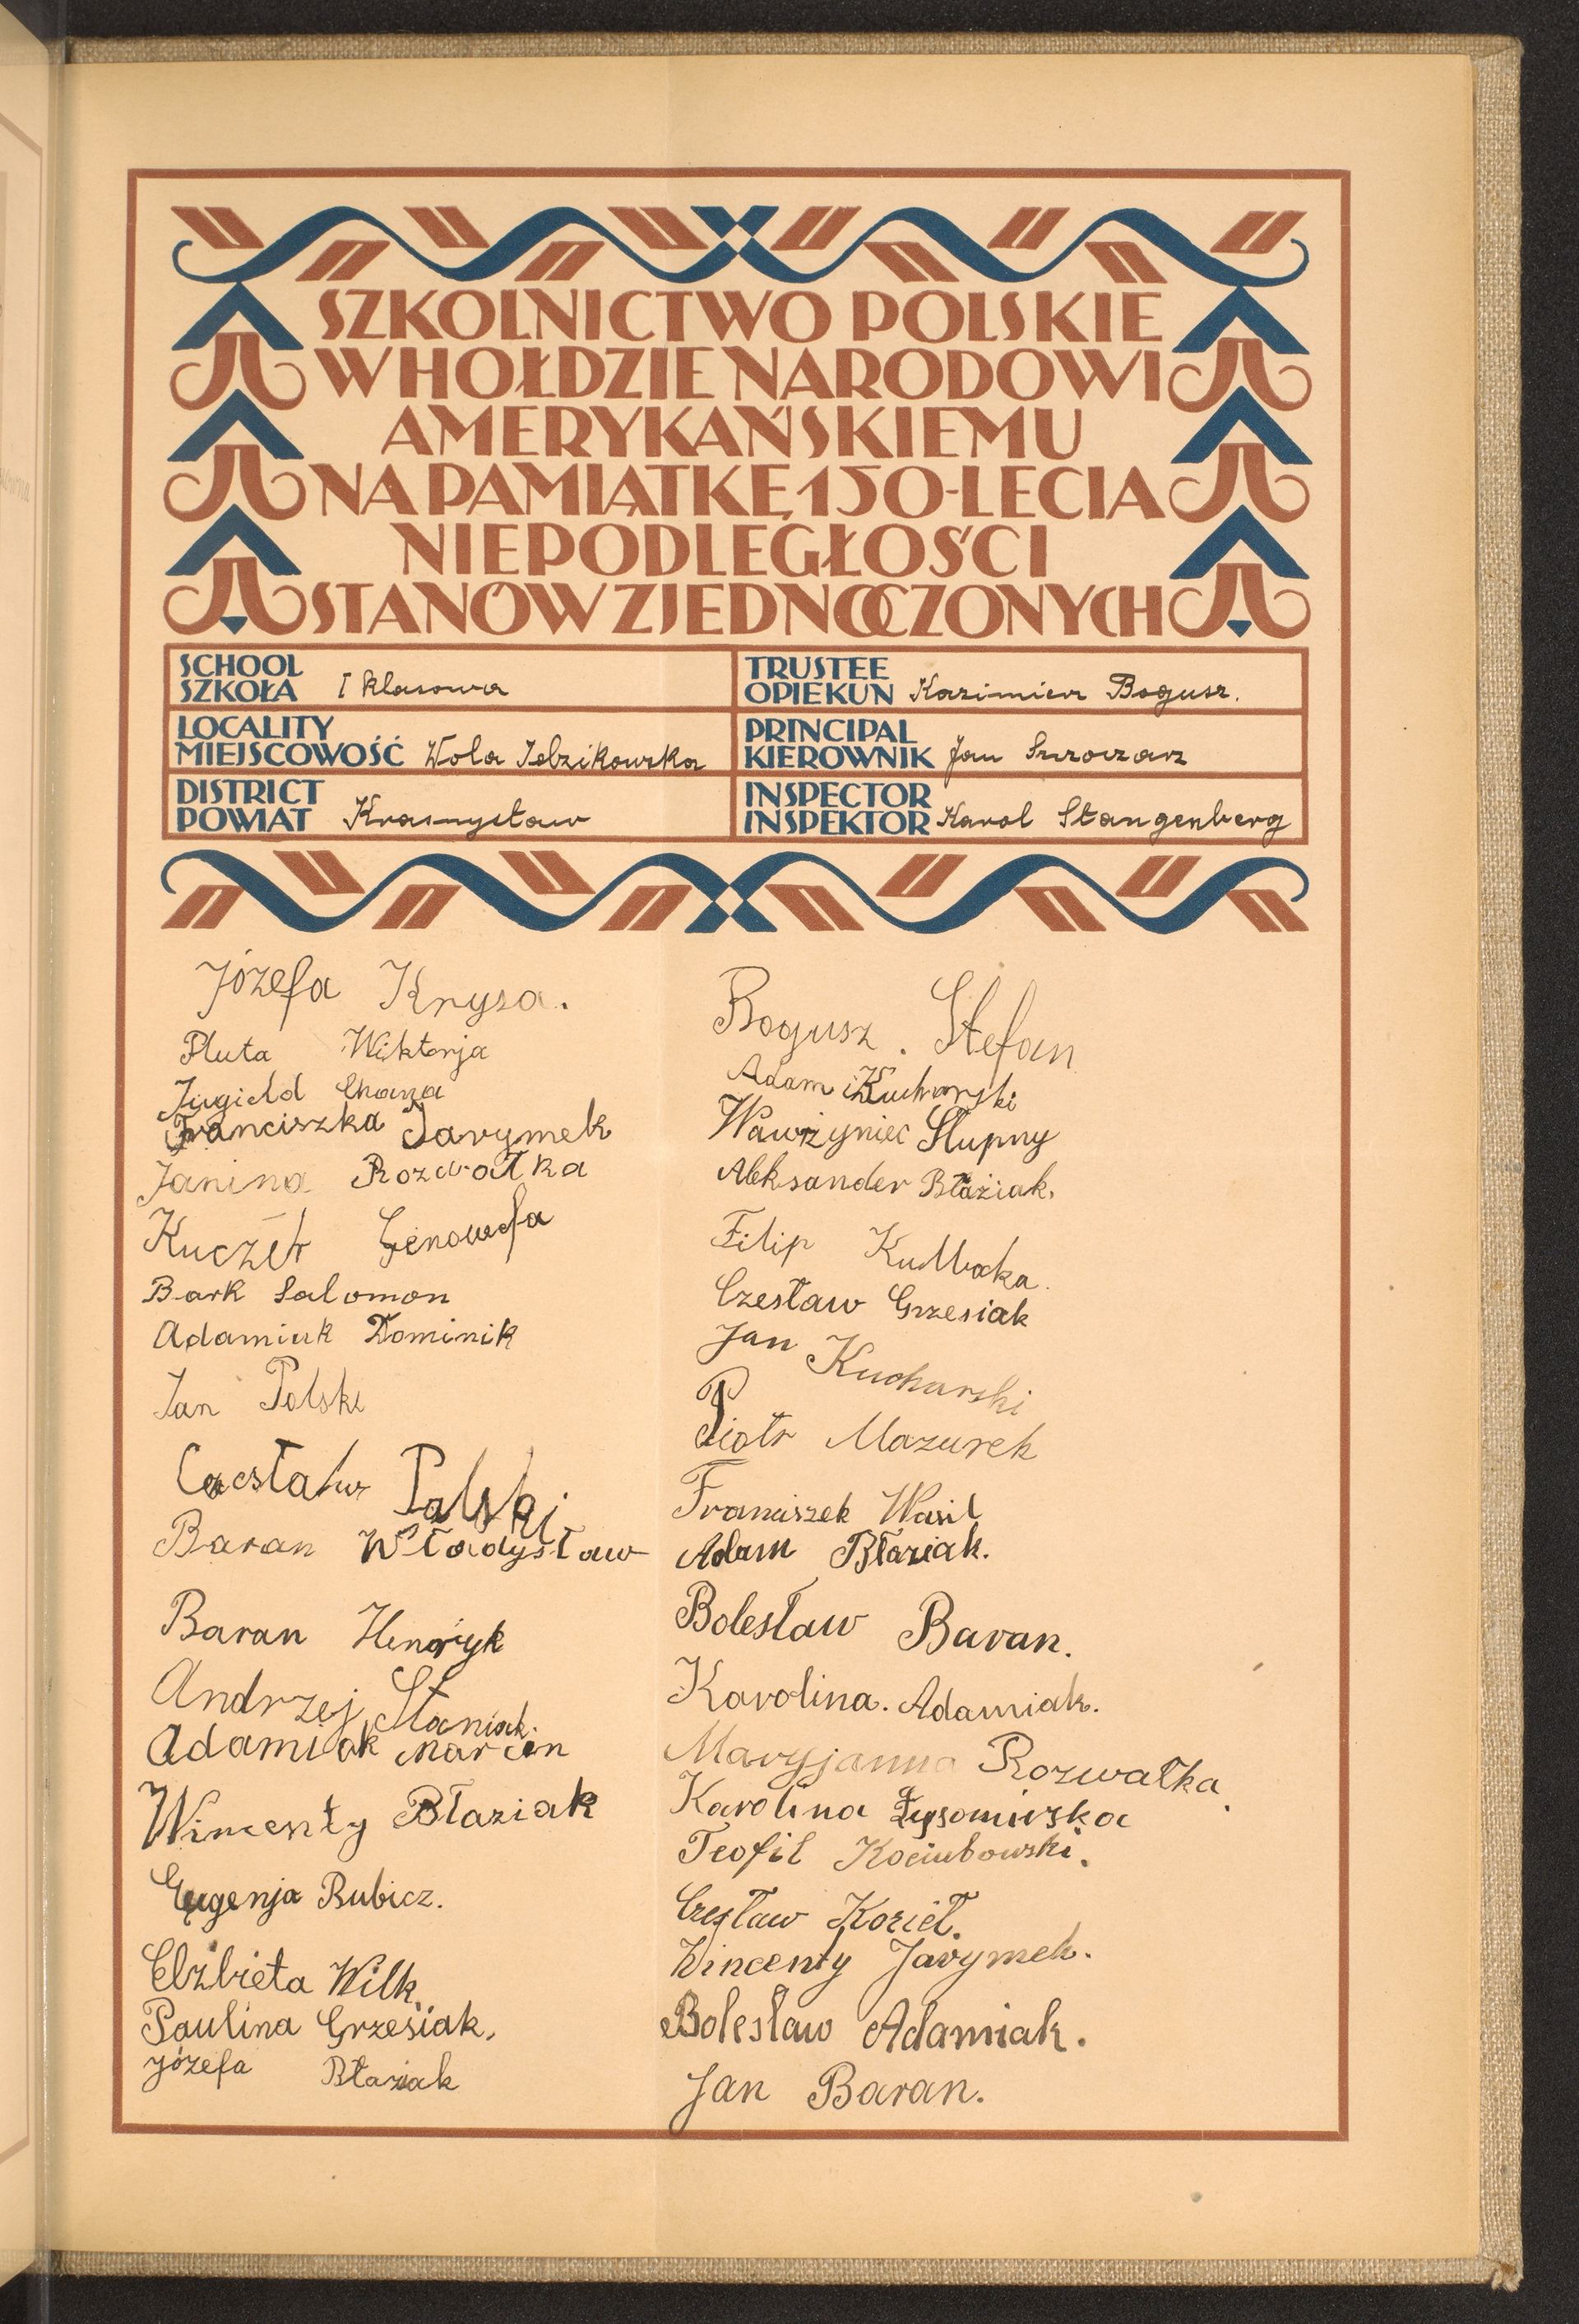 SZKOLNICTWO POLSKIE
W HOŁDZIE NARODOWI
AMERYKAŃSKIEMU
NA PAMIĄTKĘ 150-LECIA
NIEPODLEGŁOŚCI
STANÓW ZJEDNOCZONYCH
SCHOOL
SZKOŁA I klasowa
LOCALITY
MIEJSCOWOŚĆ Wola
DISTRICT
POWIAT Krasnystaw
TRUSTEE
OPIEKUN Kazimierz Bogusz.
PRINCIPAL
KIEROWNIK Jan
INSPECTOR
INSPEKTOR Karol Stangenberg
Józefa Krysa.
Pluta Wiktorja
Chana
Franciszka Jarymek
Janina Rozwałka
Genowefa
Bark Salomon
Adamiuk Dominik
Jan Polski
Polski
Baran Władysław
Baran Henryk
Andrzej Staniak.
Adamiak Marcin
Wincenty Błaziak
Eugenja Rubicz.
Elżbieta Wilk.
Paulina Grzesiak.
Józefa Błaziak
Bogusz. Stefan
Adam Kucharski
Wawrzyniec Słupny
Aleksander Błaziak.
Filip
Czesław Grzesiak
Jan Kucharski
Piotr Mazurek
Franciszek Wasil
Adam Błaziak.
Bolesław Baran.
Karolina. Adamiak.
Maryjanna Rozwałka.
Karolina
Teofil Kociubowski.
Czesław Kozieł.
Wincenty Jarymek.
Bolesław Adamiak.
Jan Baran.